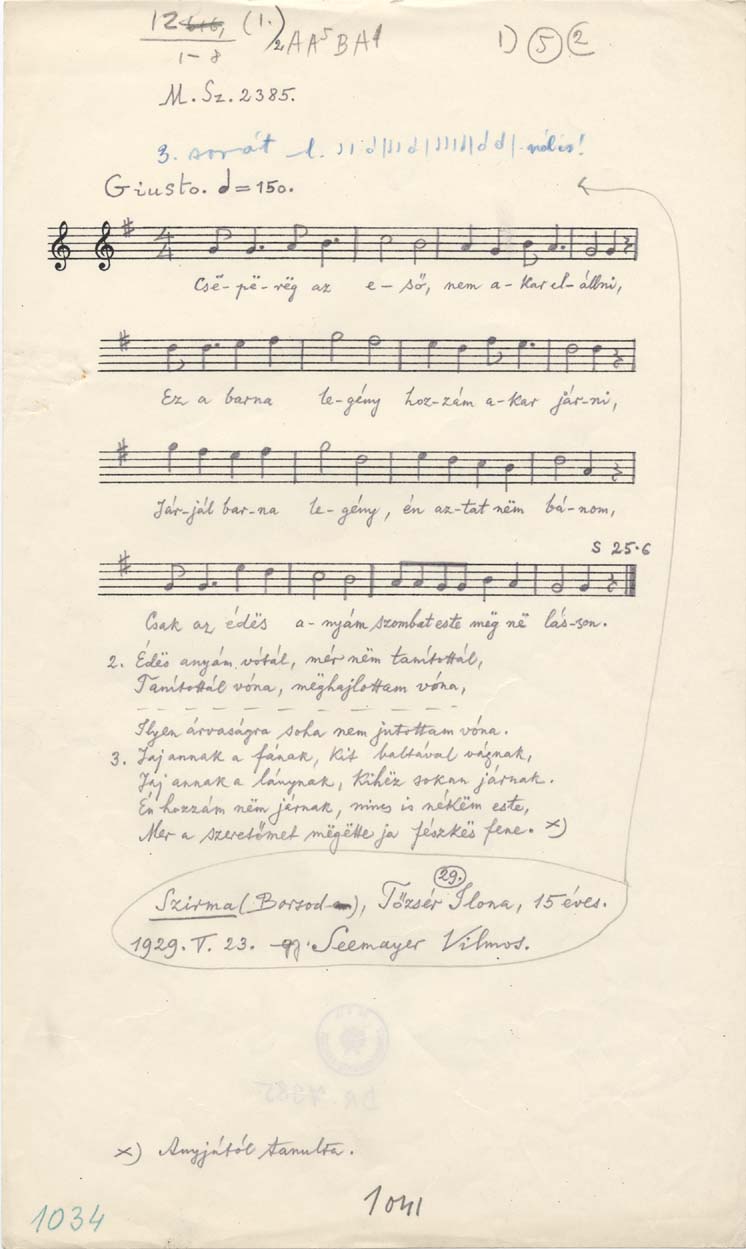 12 (1.) 2 A A⁵ B A 1) 5 2
1-8
M. Sz. 2385.
3. sorát l.
Giusto. d=150.
4
4
Csë-pë-rëg az e-ső, nem a-kar el-állni,
Ez a barna le-gény hoz-zám a-kar jár-ni,
Jár-jál bar-na le-gény, én az-tat nëm bá-nom,
S 25.6
Csak az édës a-nyám szombat este mëg në lás-son.
2. Édës anyám vótál, mér nëm tanítottál,
Tanítottál vóna, mëghajlottam vóna,
Ilyen árvaságra soha nem jutottam vóna.
3. Jaj annak a fának, kit baltával vágnak,
Jaj annak a lánynak, kihëz sokan járnak.
Én hozzám nëm járnak, nincs is nékëm este,
Mer a szeretőmet mëgëtte ja fészkës fene. x)
29.
Szirma (Borsod), Tőzsér Ilona, 15 éves.
1929. V. 23. gy. Seemayer Vilmos.
x) Anyjától tanulta.
1041
1034